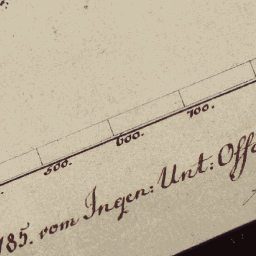 500. 600. 700.
185. vom Ingen: Unt: Offc